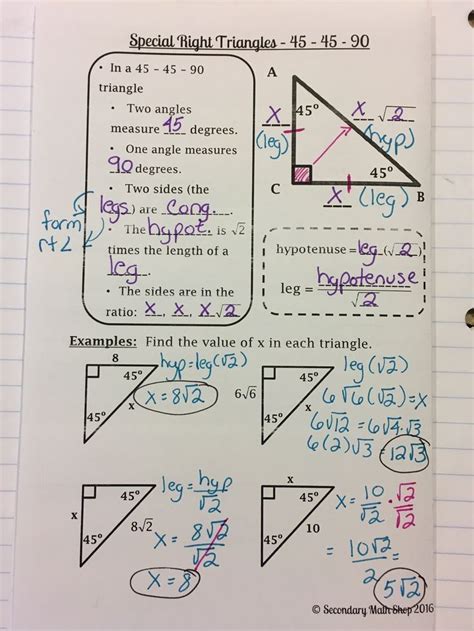 Special Right Triangles - 45 - 45 - 90
• In a 45 - 45 - 90
triangle
• Two angles
measure 45 degrees.
• One angle measures
90 degrees.
• Two sides (the
legs) are cong.
form
rt∠
• The hypot. is √2
times the length of a
leg.
• The sides are in the
ratio: x, x, x√2
A
45°
x
(leg)
x √2
(hyp)
45°
C
x (leg)
B
hypotenuse = leg (√2)
leg = hypotenuse
√2
Examples: Find the value of x in each triangle.
8
45°
45°
x
hyp=leg(√2)
x = 8√2
6√6
45°
45°
x
leg(√2)
6√6(√2)=x
6√12 = 6√4·√3
6(2)√3 = 12√3
x
45°
45°
8√2
leg = hyp
√2
x = 8√2
√2
x = 8
x
45°
45°
10
x = 10 · √2
√2 √2
= 10√2
2
= 5√2
© Secondary Math Shop 2016